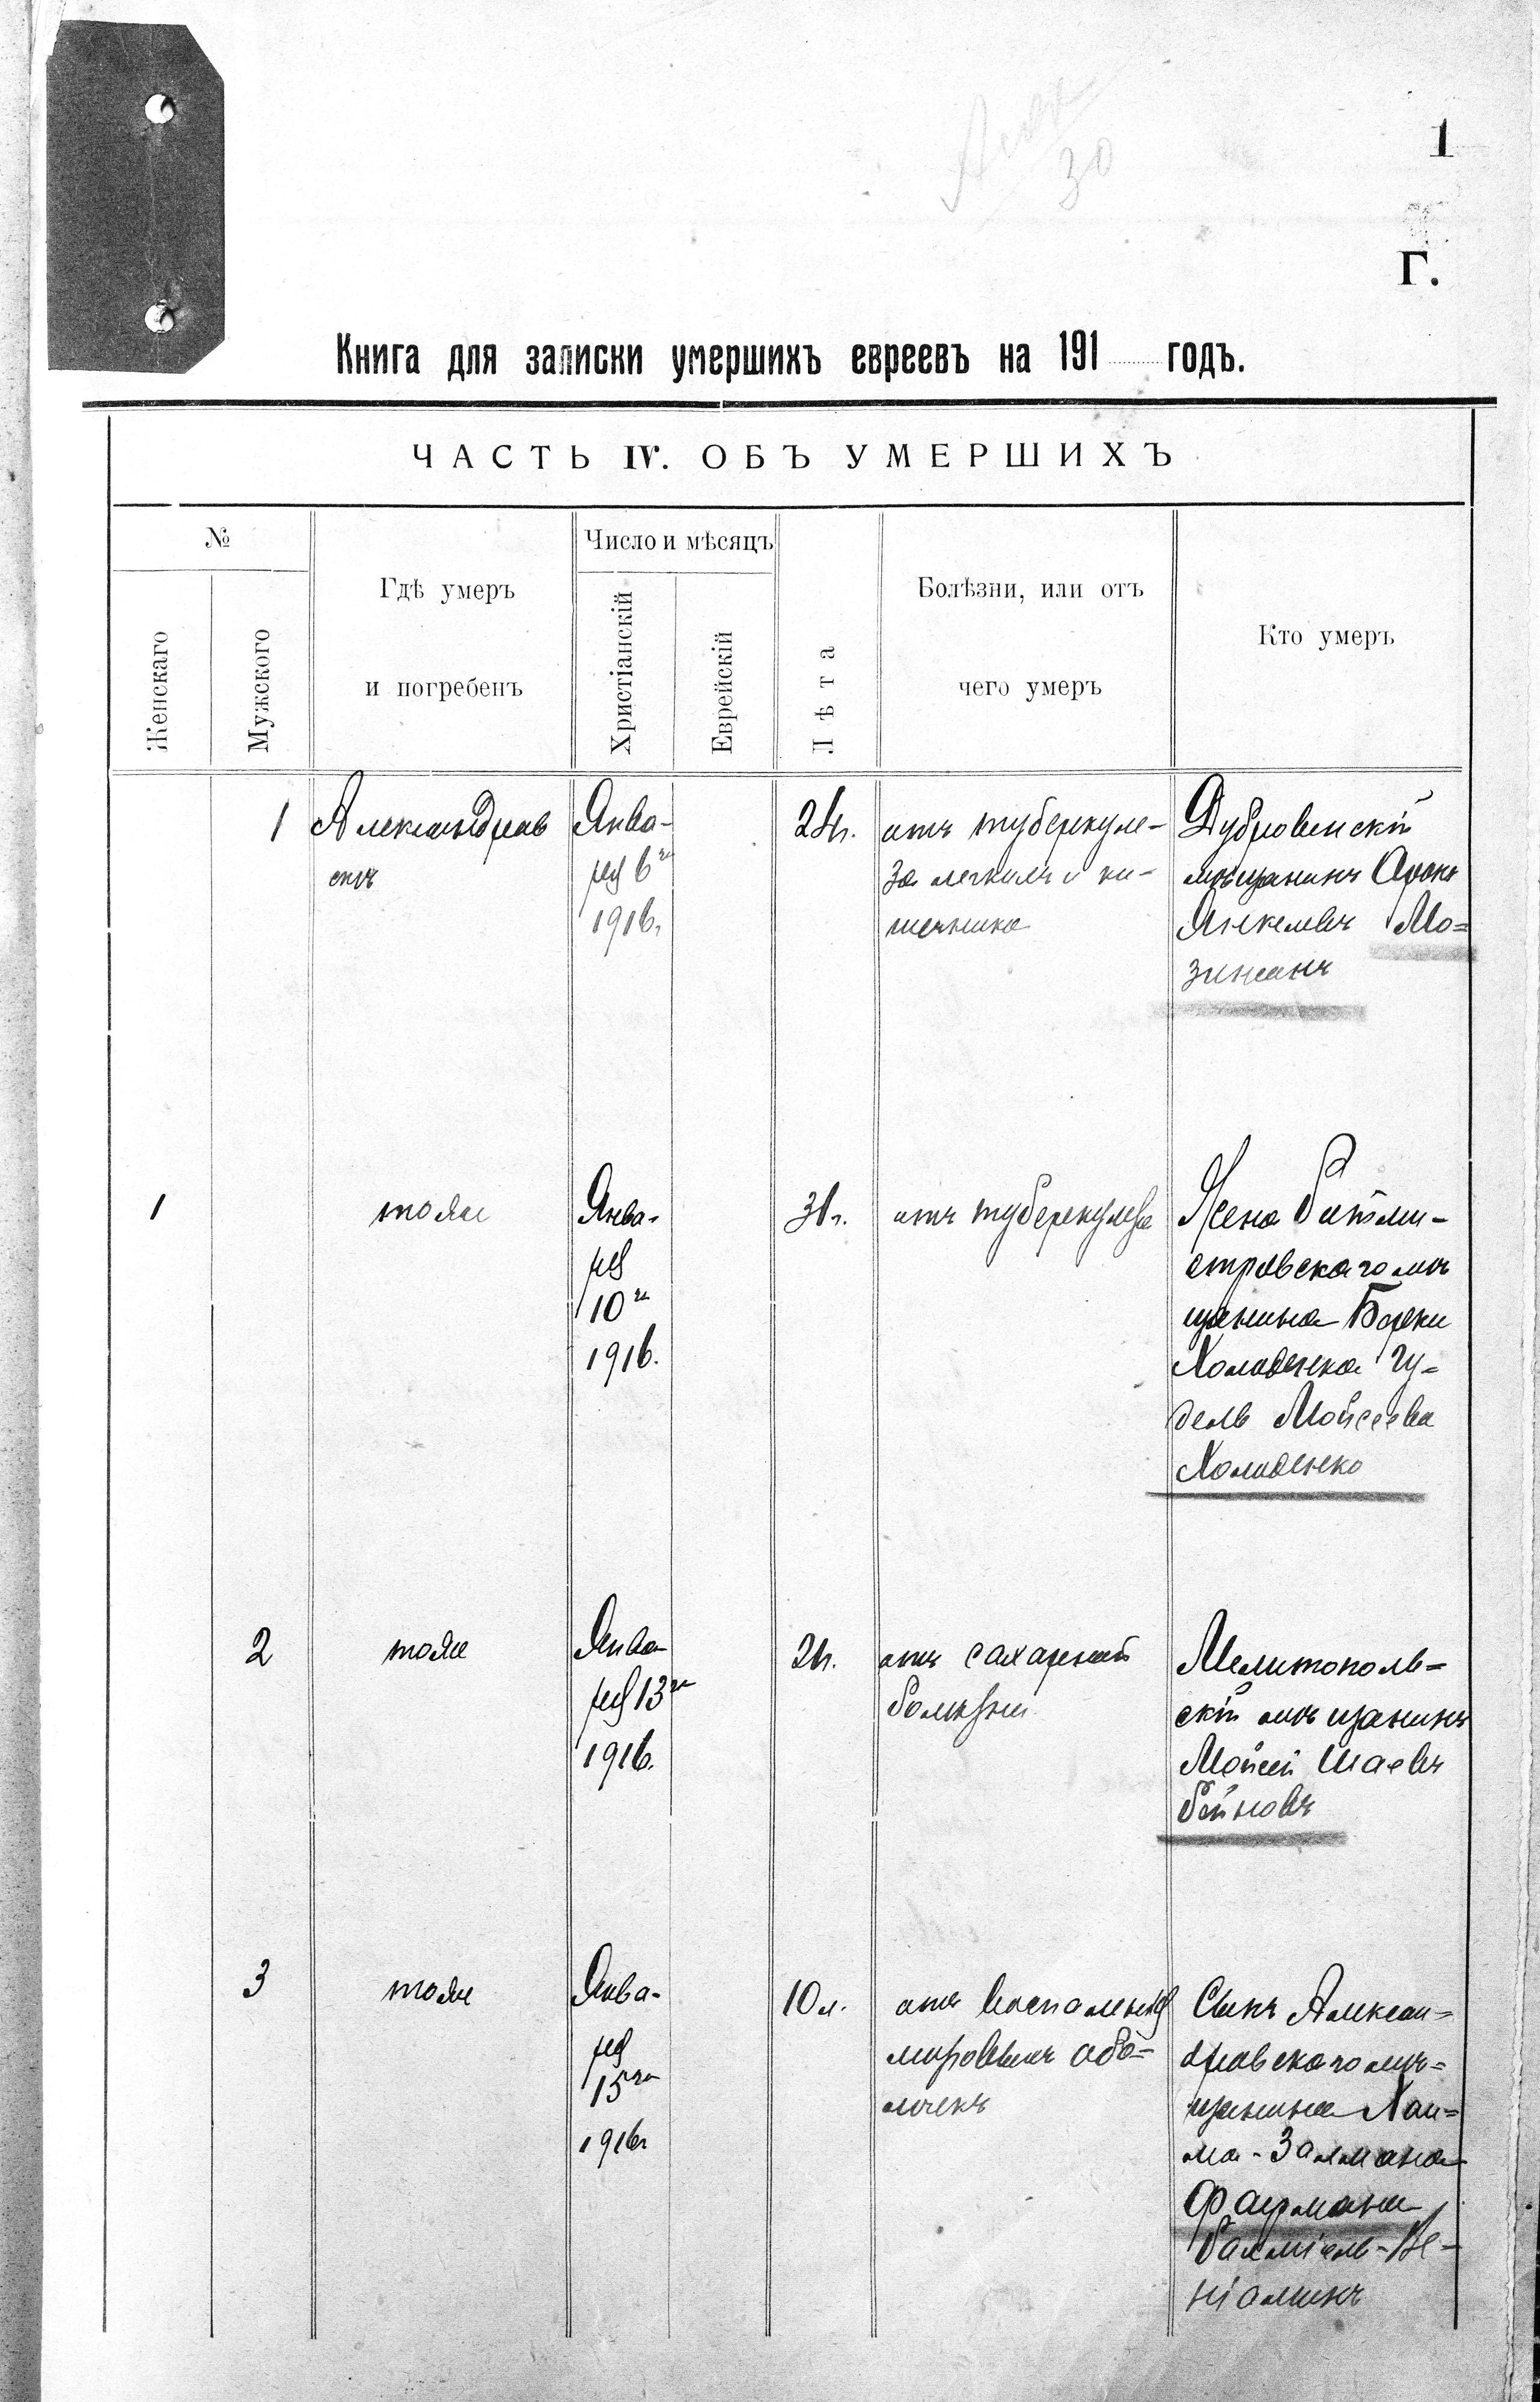 30
1
Г.
Книга для записки умершихъ евреевъ на 191 годъ.
ЧАСТЬ IV. ОБЪ УМЕРШИХЪ
№
Женскаго
Мужского
Гдѣ умеръ
и погребенъ
Число и мѣсяцъ
Христіанскій
Еврейскій
Лѣта
Болѣзни, или отъ
чего умеръ
Кто умеръ
1
Александров
скъ
Янва-
ря 6го
1916.
24г.
отъ туберкуле-
за легкихъ и ки-
шечника
Дубровенскій
мѣщанинъ Аронъ
Янкелевъ Мо=
зинсанъ
1
тоже
Янва-
ря
10го
1916.
31г.
отъ туберкулеза
Жена
стровскаго мѣ
щанина Берки
Холоденка Гу-
дель Мойсеева
Холоденко
2
тоже
Янва-
ря 13го
1916.
21г.
отъ сахарной
болѣзни
Мелитополь=
скій мѣщанинъ
Мойсей Шаевъ
Бейновъ
3
тоже
Янва-
ря
15го
1916г
10л.
отъ воспаленія
мозговыхъ обо=
лочекъ
Сынъ Алексан=
дровскаго мѣ=
щанина Хаи=
ма-Залмана
Фаермана
-Ве-
ніаминъ